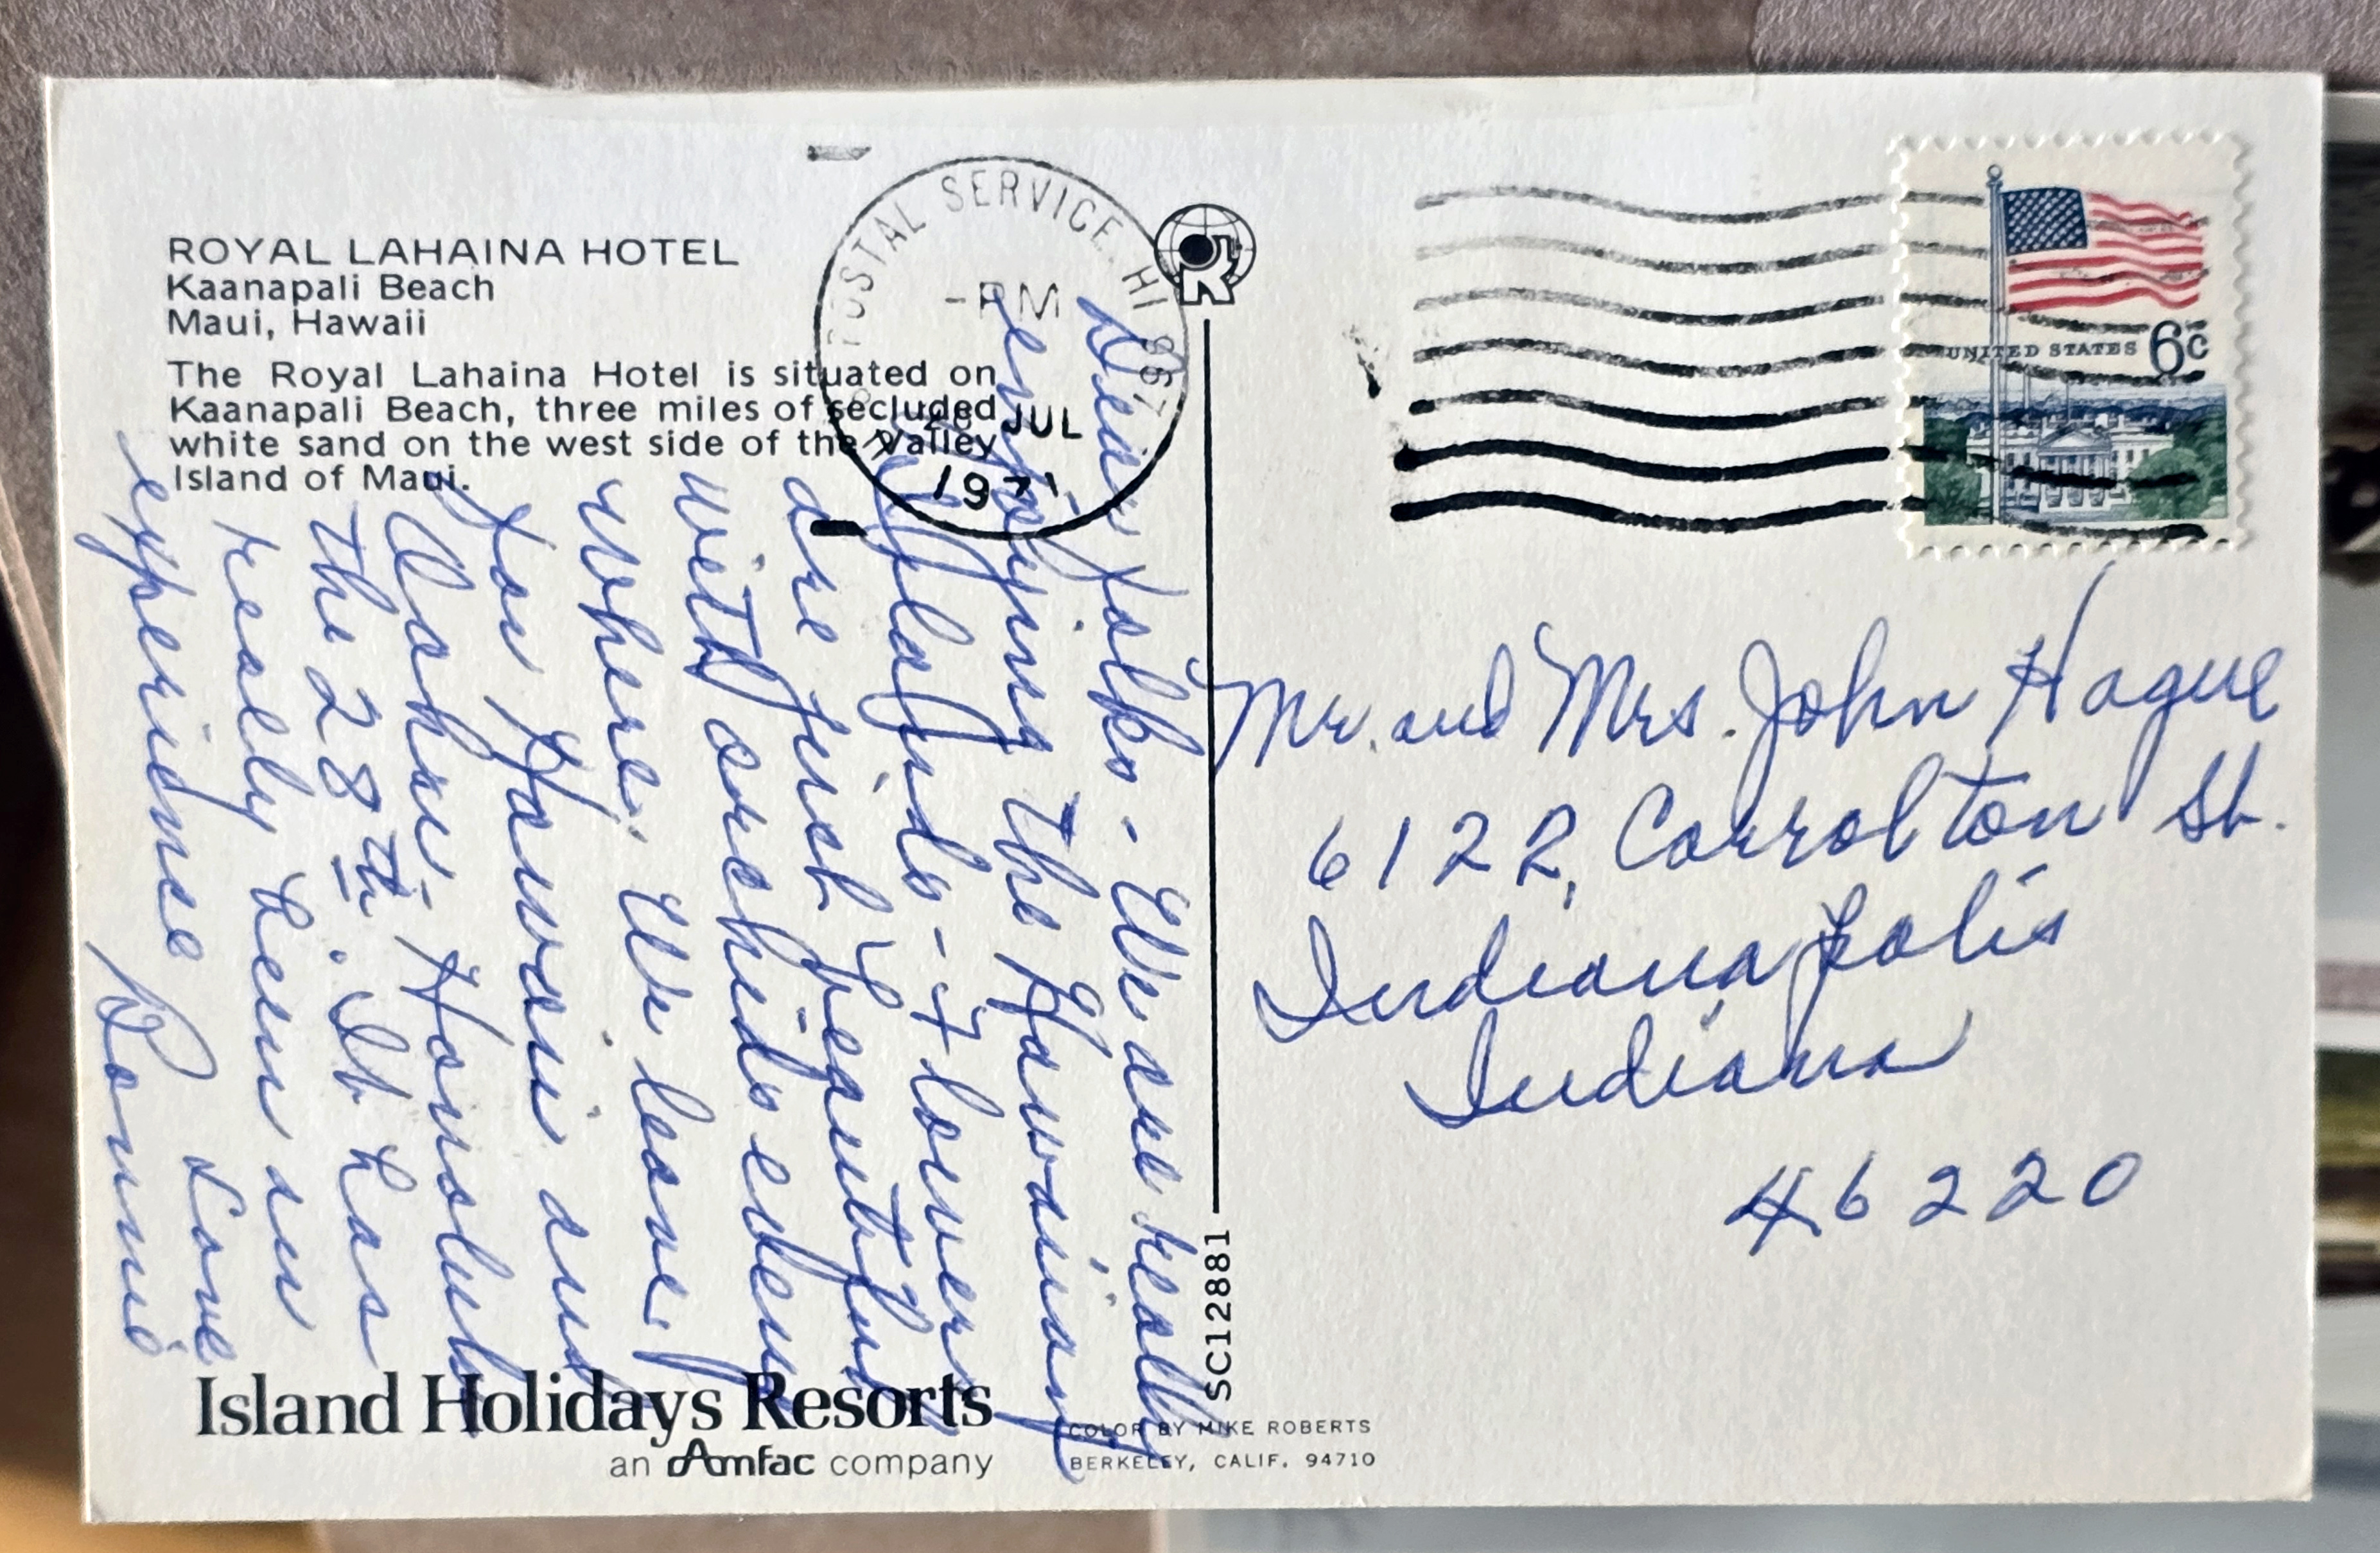 ROYAL LAHAINA HOTEL
Kaanapali Beach
Maui, Hawaii
The Royal Lahaina Hotel is situated on
Kaanapali Beach, three miles of secluded
white sand on the west side of the Valley
Island of Maui.
POSTAL SERVICE, HI 967
-PM
28 JUL
1971
UNITED STATES 6c
Dear Folks - We are really
enjoying the Hawaiian
Islands - flowers
are just beautiful
with orchids every
where. We leave
for Hawaii and
Oahu - Honolulu
the 28th. It has
really been an
experience Love
Bonnie
Mr. and Mrs. John Hague
6122 Carrolton St.
Indianapolis
Indiana
46220
SC12881
Island Holidays Resorts
an Amfac company
COLOR BY MIKE ROBERTS
BERKELEY, CALIF. 94710